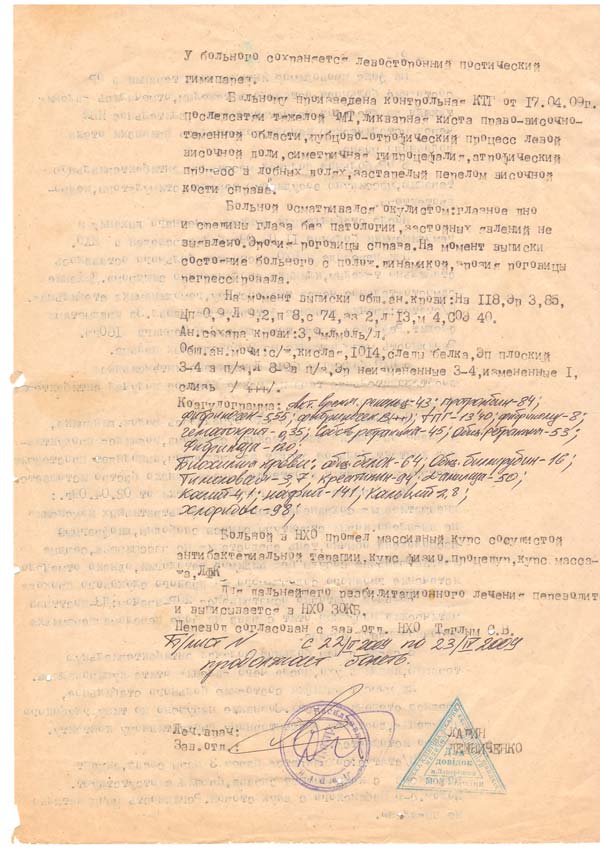 У больного сохраняется левосторонний постический
гимипарез.
Больному произведена контрольная КТГ от 17.04.09г.
Последсятаи тяжелой ЧМТ, ликварная киста право-височно-
теменной области, рубцово-отрофический процесс левой
височной доли, симетричная гидроцефалия, атрофический
процесс в лобных долях, застарелый перелом височной
кости справа.
Больной осматривался окулистом: глазное дно
и спешины глаза без патологии, застойных явлений не
выявлено. Эрозия роговицы справа. На момент выписки
состояние больного с полож. динамикой, эрозия роговицы
регрессировала.
На момент выписки общ.ан.крови: Нв 118, Эр 3,85,
Цп 0,9, Л 9,2, п 8, с 74, эз 2, л 13, м 4, СОЭ 40.
Ан.сахара крови: 3,9 млмоль/л.
Общ.ан.мочи: с/ж, кислая, 1014, следы белка, Эп плоский
3-4 в п/з, Л 8-9 в п/з, Эр неизмененные 3-4, измененные I,
слизь / +++/.
Коагулограмма: Акт. время рекальц-43; протромбин-84;
фибриноген-5,55; фибриноген В(++); ТПГ-1340; фибринац-8;
гематокрит-0,35; Собств. ретракция-45; Общ. ретракция-53;
Фибринага-120;
Биохимия крови: общ. белок-64; Общ. билирубин-16;
Тимоловая-3,7; креатинин-94; Амилаза-50;
калий-4,1; натрий-141; кальций-2,8;
хлориды-98;
Больной в НХО прошел массивный курс сосудистой
антибактериальной терапии, курс физио.процедур, курс масса-
та, ЛФК
Для дальнейшего реабилитационного лечения переводит
и выписывается в НХО ЗОКБ.
Перевод согласован с зав.отд. НХО С.В.
Б/лист N с 22/IV 2009 по 23/IV 2009
продолжает болеть.
Леч.врач:
Зав.отд.:
ДЕМНИЧЕНКО
Для
довідок
м.Запоріжжя
МОЗ України